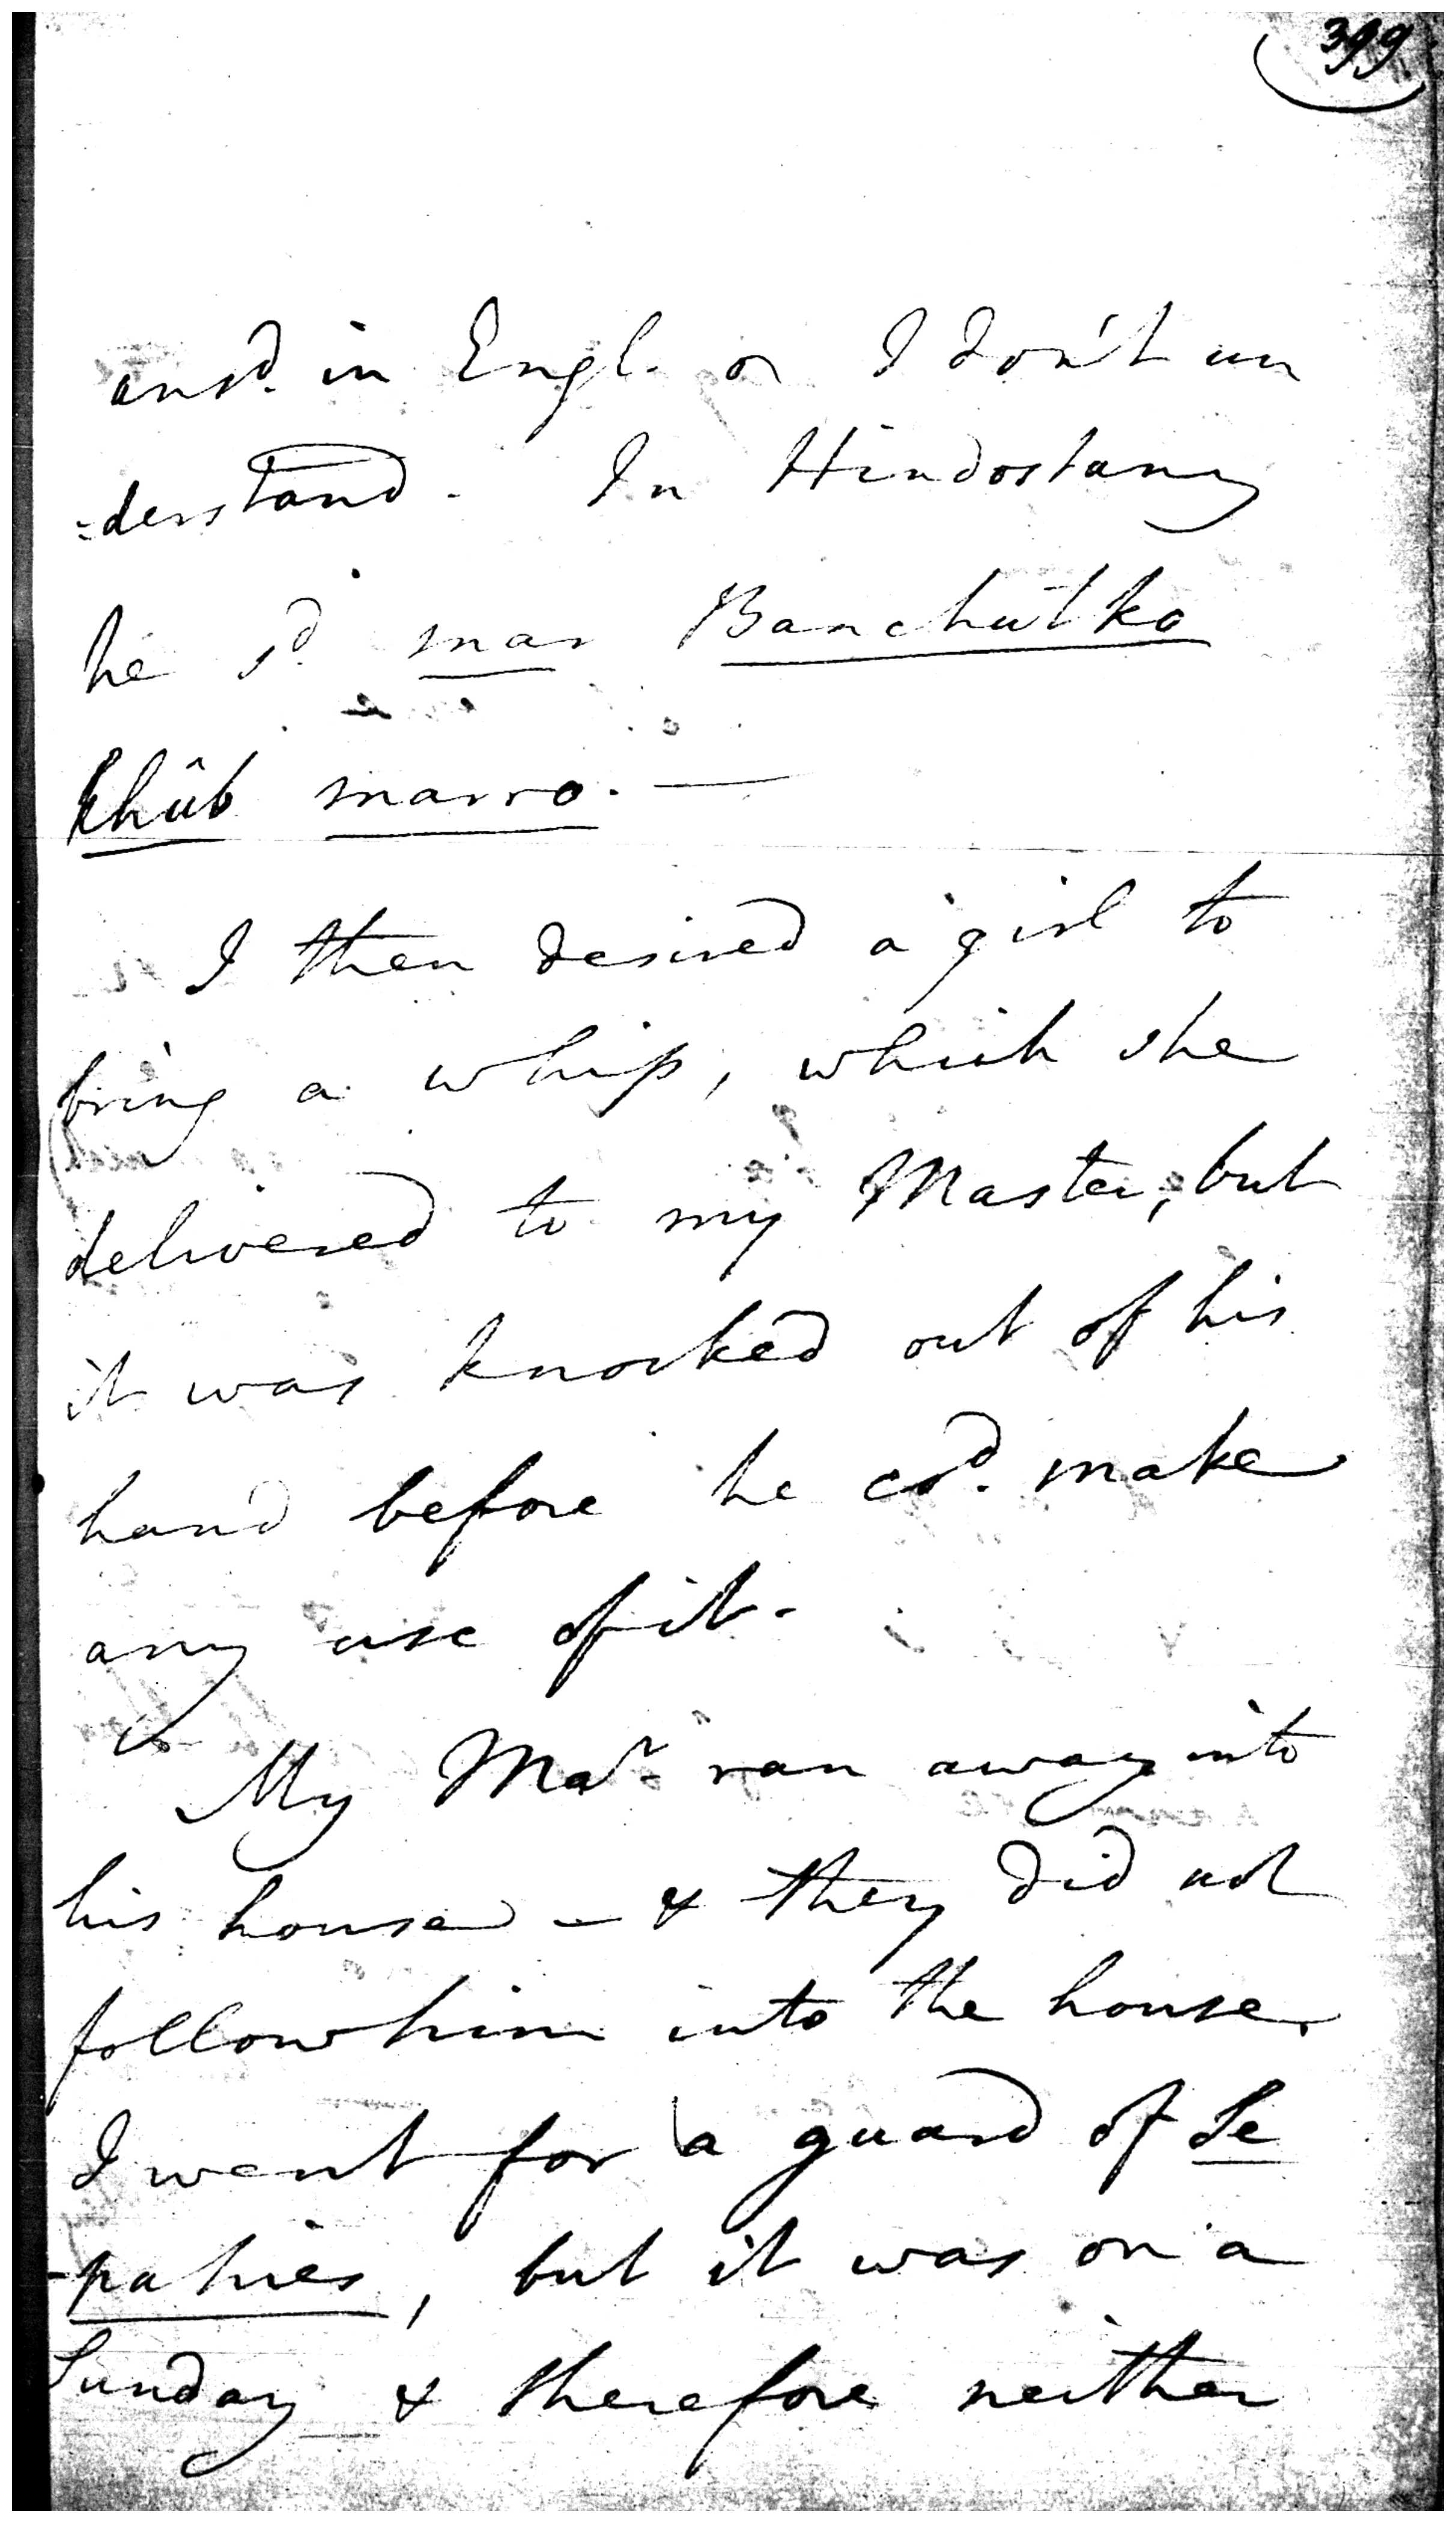 399
ansd. in Engl. or I don't un
=derstand. In Hindostany
he sd. mar Banchūtko
khûb marro. —
I then desired a girl to
bring a whip, which she
delivered to my Master, but
it was knocked out of his
hand before he cod. make
any use of it.
My Mar. ran away into
his house — & they did not
follow him into the house.
I went for a guard of Se
-pahies, but it was on a
Sunday & therefore neither